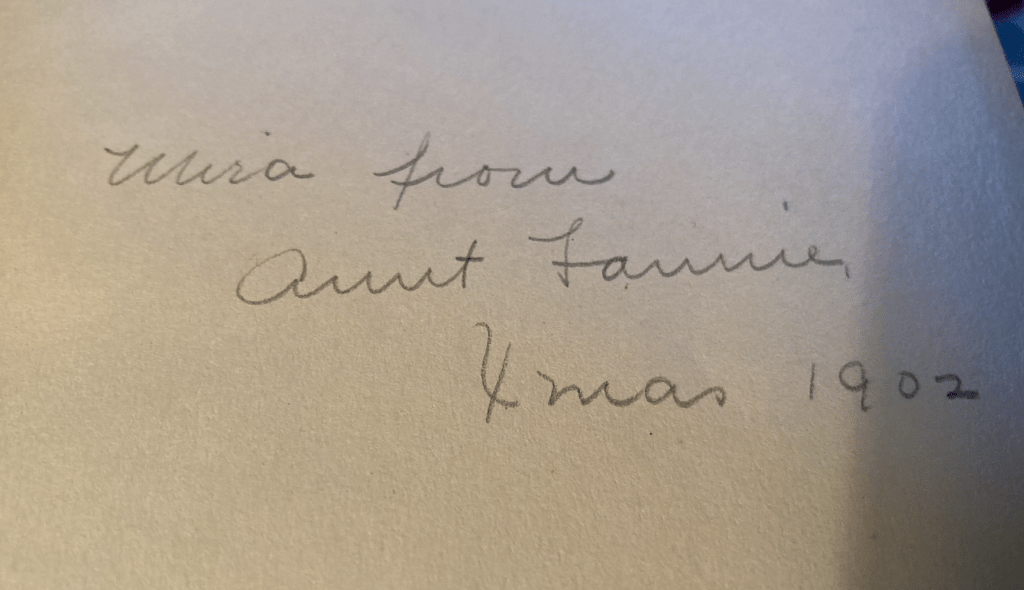 Mira from
Aunt Fannie,
Xmas 1902